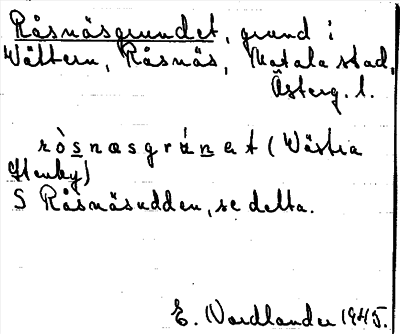 Råsnäsgrundet, grund i
Vättern, Råsnäs, Motala stad,
Österg. l.
ròsnæsgrúnet (Västra
Stenby)
S Råsnäsudden, se detta.
E. Nordlander 1945.